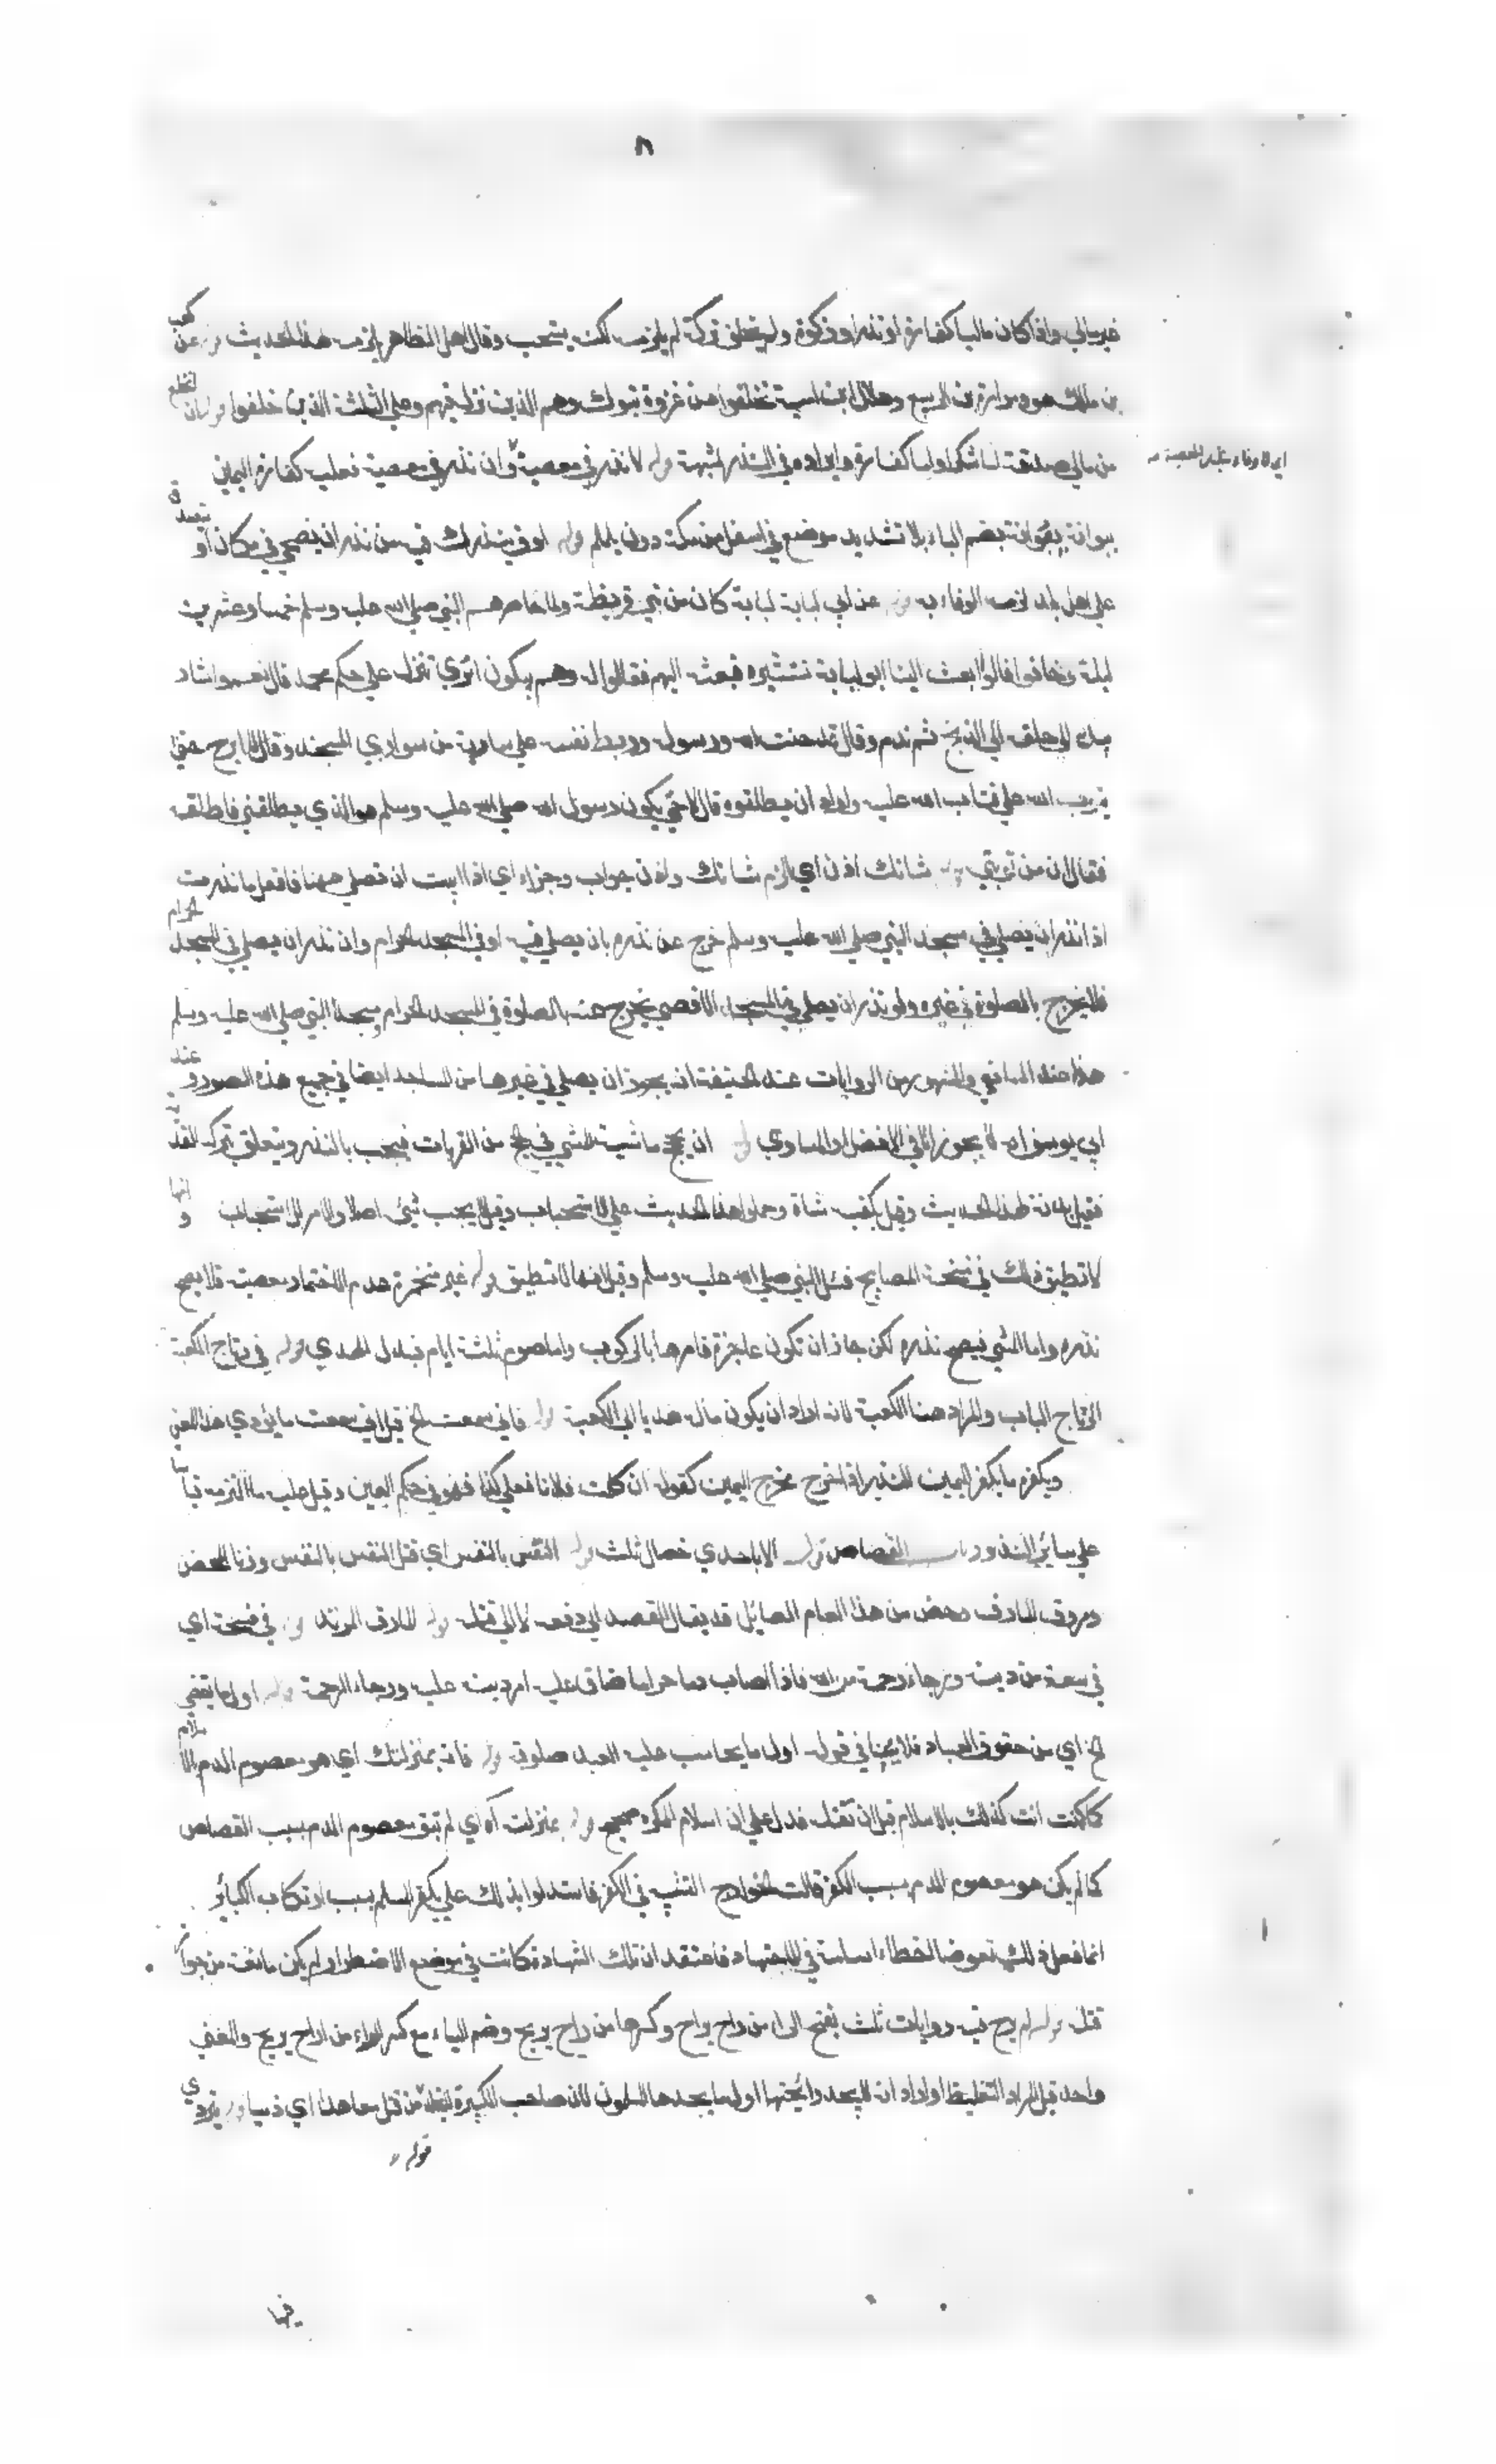 غير مالي واذا كان ماليا كفارة او نذرا او زكوة ولم يتعلق تركة لم يلزمه لكنه يستحب وقال اهل الظاهر يلزمه هذا الحديث قوله عن كعب
بن مالك هو ومرارة بن الربيع وهلال ابن امية تخلفوا عن غزوة تبوك وهم الذين نزل فيهم وعلى الثلثة الذين خلفوا قوله ان انخلع
من مالي صدقة اما شكرا واما كفارة وايراده في النذر لشبهه قوله لا نذر في معصية وان نذر في معصية فعليه كفارة اليمين
ببوانة بضم الباء بلا تشديد موضع في اسفل من مكة دون يلملم قوله اوفي بنذرك فيه من نذر ان يضحي في مكان او يتصدق
على اهل بلد لزمه الوفاء به قوله عن ابي لبابة لبابة كان من بني قريظة ولما حاصرهم النبي صلى الله عليه وسلم خمسا وعشرين
ليلة وخافوا قالوا ابعث الينا ابو لبابة نستشيره فبعثه اليهم فقالوا له وهم يبكون اترى ننزل على حكم محمد قال نعم واشار
بيده الى حلقه الى الذبح ثم ندم وقال قد خنت الله ورسوله وربط نفسه على سارية من سواري المسجد وقال لا ابرح حتى
يتوب الله علي فتاب الله عليه وارادوا ان يطلقوه قال لا حتى يكون رسول الله صلى الله عليه وسلم هو الذي يطلقني فاطلقه
فقال ان من توبتي قوله شانك اذن اي الزم شانك واذن جواب وجزاء اي اذا ابيت ان تصلي ههنا فافعل ما نذرت
اذا نذر ان يصلي في مسجد النبي صلى الله عليه وسلم خرج عن نذره بان يصلي فيه او في المسجد الحرام وان نذر ان يصلي في المسجد الحرام
فلا يخرج بالصلوة في غيره ولو نذر ان يصلي في المسجد الاقصى يخرج عنه بالصلوة في المسجد الحرام ومسجد النبي صلى الله عليه وسلم
هذا عند الشافعي والمشهور من الروايات عند الحنيفة انه يجوز ان يصلي في غيرها من المساجد ايضا في جميع هذه الصور وعند
ابي يوسف انه لا يجوز الا في الافضل او المساوي قوله ان يحج ماشية المشي في الحج من القربات فيجب بالنذر ويتعلق بتركه الفدية
فقيل بدنة لهذا الحديث وقيل يكفيه شاة وحملوا هذا الحديث على الاستحباب وقيل لا يجب شيء اصلا والامر للاستحباب وانها
لا تطيق ذلك في نسخة المصابيح فسئل النبي صلى الله عليه وسلم وقيل انها لا تطيق قوله غير مختمرة عدم الاختمار معصية فلا يصح
نذره واما المشي فيصح نذره لكن جاز ان تكون عاجزة فامرها بالركوب واما صوم ثلثة ايام فبدل الهدي قوله في رتاج الكعبة
الرتاج الباب والمراد هنا الكعبة لانه اراد ان يكون ماله هديا الى الكعبة قوله فاني سمعت الخ قيل اني سمعت ما يؤدي هذا المعنى
ويكفره ما يكفر اليمين النذر اذا خرج مخرج اليمين كقوله ان كلمت فلانا فعلي كذا فهو في حكم اليمين وقيل عليه ما التزمه قياسا
على سائر النذور باب القصاص قوله الا باحدى خصال ثلث قوله النفس بالنفس اي قتل النفس بالنفس وزنا المحصن
ومروق المارق وخص من هذا العام الصائل قد يقال القصد الى دفعه لا الى قتله قوله المارق المرتد قوله في فسحة اي
في سعة من دينه ورجاء رحمة من الله فاذا اصاب دما حراما ضاق عليه امر دينه عليه ورجاء الرحمة قوله اول ما يقضى
الخ اي من حقوق العباد فلا ينافي قوله اول ما يحاسب عليه العبد صلوته قوله فانه بمنزلتك اي هو معصوم الدم بالاسلام
كما كنت انت كذلك بالاسلام قبل ان تقتله فدل على ان اسلام المكره صحيح قوله بمنزلته اه اي لم تبق معصوم الدم بسبب القصاص
كما لم يكن هو معصوم الدم بسبب الكفر قالت الخوارج التشبيه في الكفر فاستدلوا بذلك على كفر المسلم بسبب ارتكاب الكبائر
انما فعل ذلك اسامة في الاجتهاد فاعتقد ان تلك الشهادة كانت في موضع الاضطرار ولم يكن مانعة من جواز
قتله قوله لم يرح فيه روايات ثلث بفتح الراء من راح يراح وكسرها من راح يريح وضم الياء مع كسر الراء من اراح يريح والمعنى
واحد قيل المراد التغليظ او اراد ان لا يجد رائحتها اول ما يجدها المسلمون لان صاحب الكبيرة من قتل معاهدا اي ذميا قوله يتردى
قوله
ايه لا وفاء بنذر المعصية
فيها